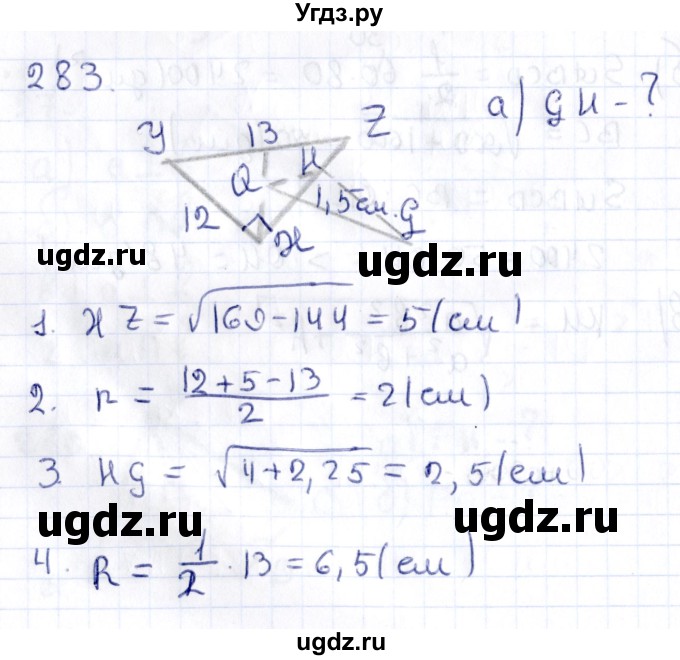 Угдз.ру
283.
а) GH - ?
Y 13 Z
Q H
12 1,5см. G
X
ugdz.ru ugdz.ru
1. XZ = √169-144 = 5(см)
2. r = 12+5-13 / 2 = 2(см)
3. HG = √4+2,25 = 2,5(см)
ugdz.ru ugdz.ru
4. R = 1/2 · 13 = 6,5(см)
ugdz.ru